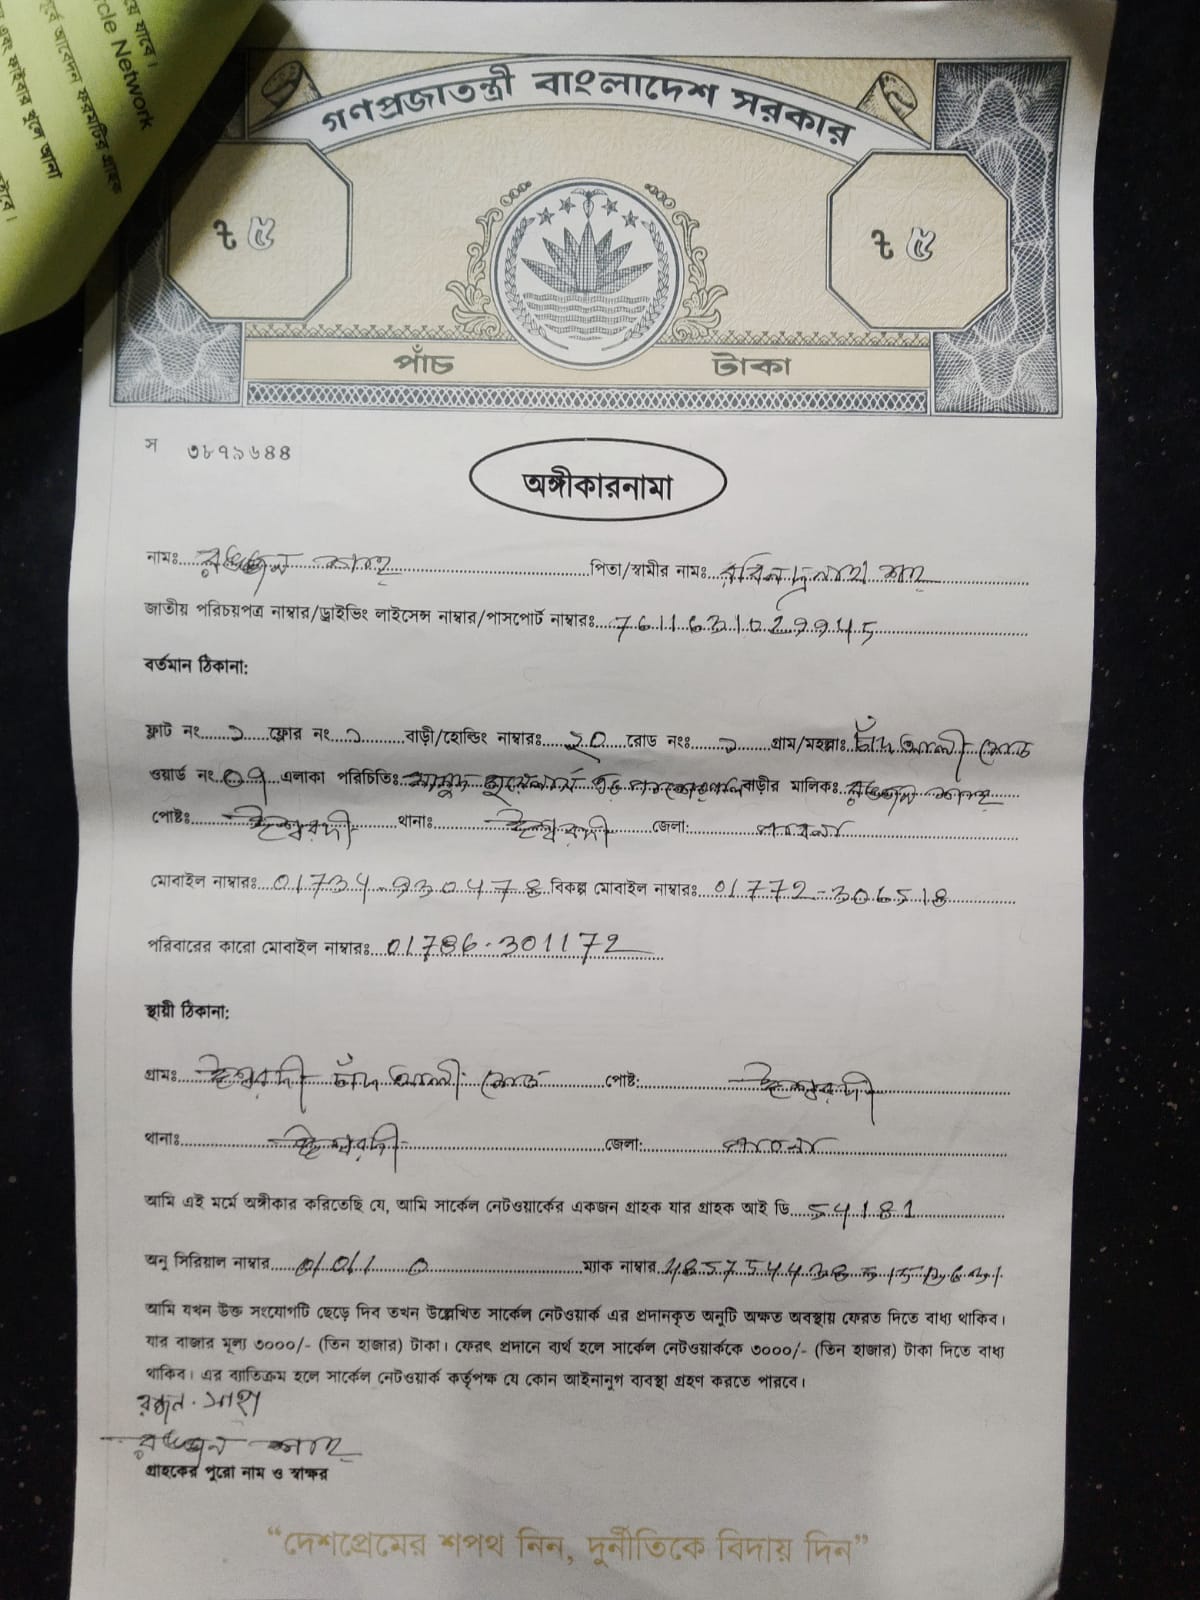 য়ে যাবে।
rcle Network
পূর্বে আবেদন ফরমটির গ্রাহক
এবং ফাইবার খুলে আনা
গণপ্রজাতন্ত্রী বাংলাদেশ সরকার
৳ ৫ ৳ ৫
পাঁচ টাকা
স ৩৮৭৯৬৪৪
অঙ্গীকারনামা
নামঃ রঞ্জন সাহা পিতা/স্বামীর নামঃ রবিন্দ্রনাথ সাহা
জাতীয় পরিচয়পত্র নাম্বার/ড্রাইভিং লাইসেন্স নাম্বার/পাসপোর্ট নাম্বারঃ
বর্তমান ঠিকানা:
ফ্লাট নং ১ ফ্লোর নং ১ বাড়ী/হোল্ডিং নাম্বারঃ ২০ রোড নংঃ ১ গ্রাম/মহল্লাঃ চাঁদ আলী মোড়
ওয়ার্ড নং ০৭ এলাকা পরিচিতিঃ বাড়ীর মালিকঃ রঞ্জন সাহা
পোষ্টঃ ঈশ্বরদী থানাঃ ঈশ্বরদী জেলা: পাবনা
মোবাইল নাম্বারঃ 01734-930478 বিকল্প মোবাইল নাম্বারঃ 01772-306518
পরিবারের কারো মোবাইল নাম্বারঃ 01786-301172
স্থায়ী ঠিকানা:
গ্রামঃ ঈশ্বরদী চাঁদ আলী মোড় পোষ্ট: ঈশ্বরদী
থানাঃ ঈশ্বরদী জেলা: পাবনা
আমি এই মর্মে অঙ্গীকার করিতেছি যে, আমি সার্কেল নেটওয়ার্কের একজন গ্রাহক যার গ্রাহক আই ডি 54181
অনু সিরিয়াল নাম্বার ম্যাক নাম্বার
আমি যখন উক্ত সংযোগটি ছেড়ে দিব তখন উল্লেখিত সার্কেল নেটওয়ার্ক এর প্রদানকৃত অনুটি অক্ষত অবস্থায় ফেরত দিতে বাধ্য থাকিব।
যার বাজার মূল্য ৩০০০/- (তিন হাজার) টাকা। ফেরৎ প্রদানে ব্যর্থ হলে সার্কেল নেটওয়ার্ককে ৩০০০/- (তিন হাজার) টাকা দিতে বাধ্য
থাকিব। এর ব্যতিক্রম হলে সার্কেল নেটওয়ার্ক কর্তৃপক্ষ যে কোন আইনানুগ ব্যবস্থা গ্রহণ করতে পারবে।
রঞ্জন সাহা
রঞ্জন সাহা
গ্রাহকের পুরো নাম ও স্বাক্ষর
“দেশপ্রেমের শপথ নিন, দুর্নীতিকে বিদায় দিন”